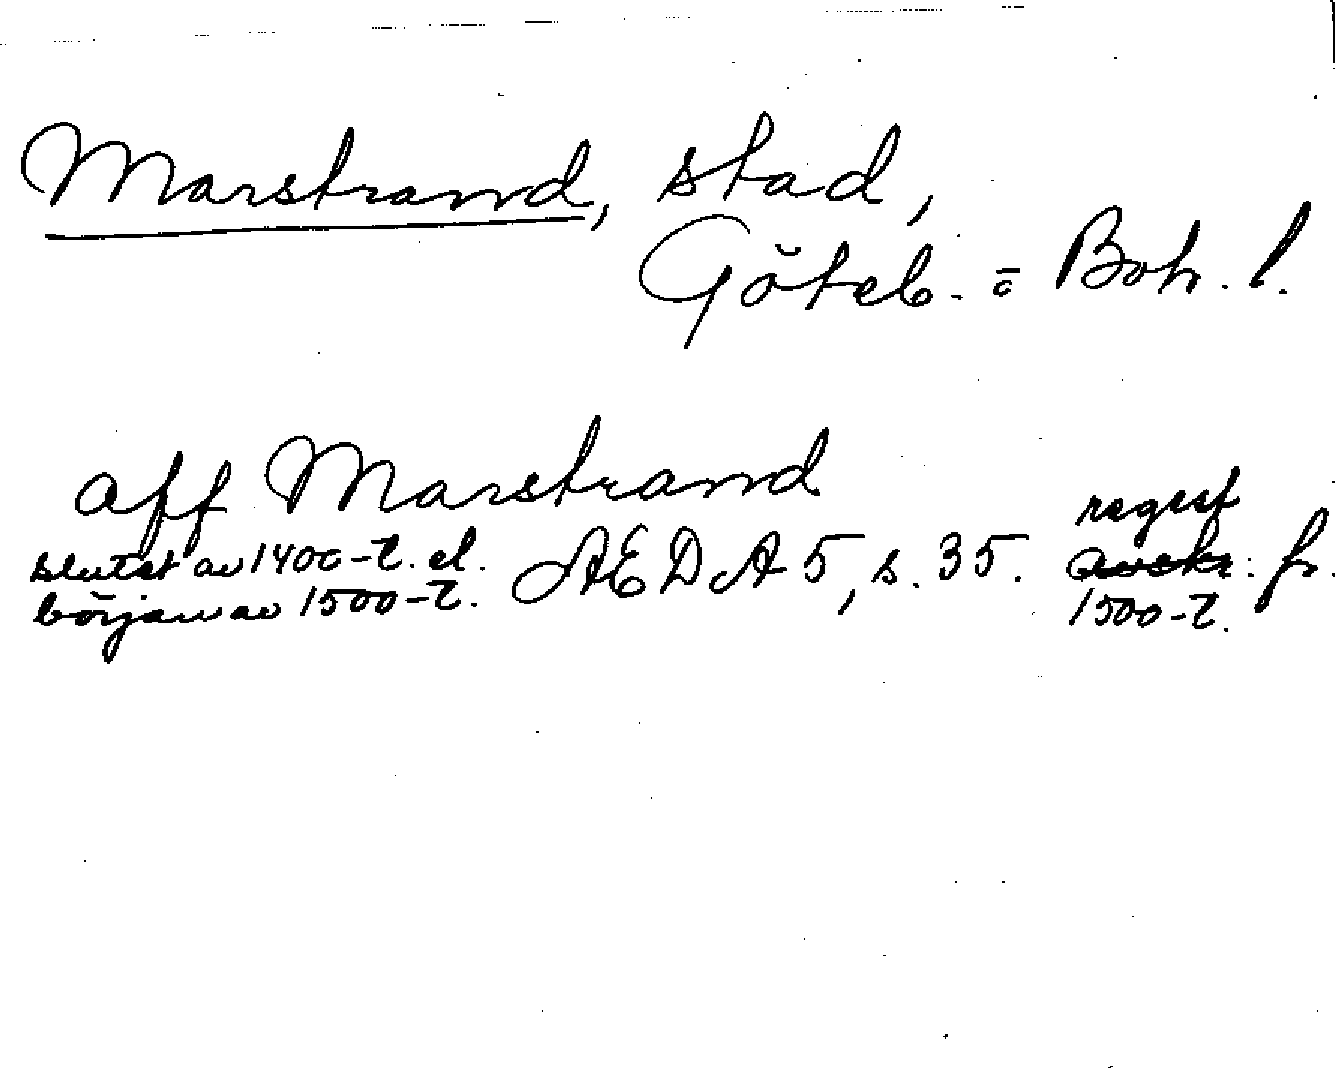 Marstrand, stad,
Göteb. o Boh. l.
aff Marstrand
slutet av 1400-t. el. AEDA 5, s. 35. regest
början av 1500-t. avskr. fr.
1500-t.